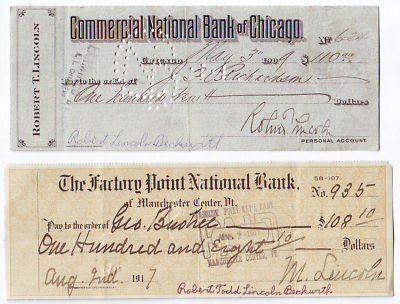 Commercial National Bank of Chicago.
No
Chicago, May 3rd 1909 $110.00
Pay to the order of J. B. Richardson
One hundred ten
Dollars
Robt T. Lincoln
PERSONAL ACCOUNT.
ROBERT T. LINCOLN
Robert Lincoln Beckwith
58-107
The Factory Point National Bank,
No. 935
of Manchester Center, Vt.
Pay to the order of Geo. Bushee $108 10
One Hundred and Eight 10 Dollars
PAID
MANCHESTER CENTER, VT.
Aug. 2nd. 1917 M. Lincoln
Robert Todd Lincoln Beckwith